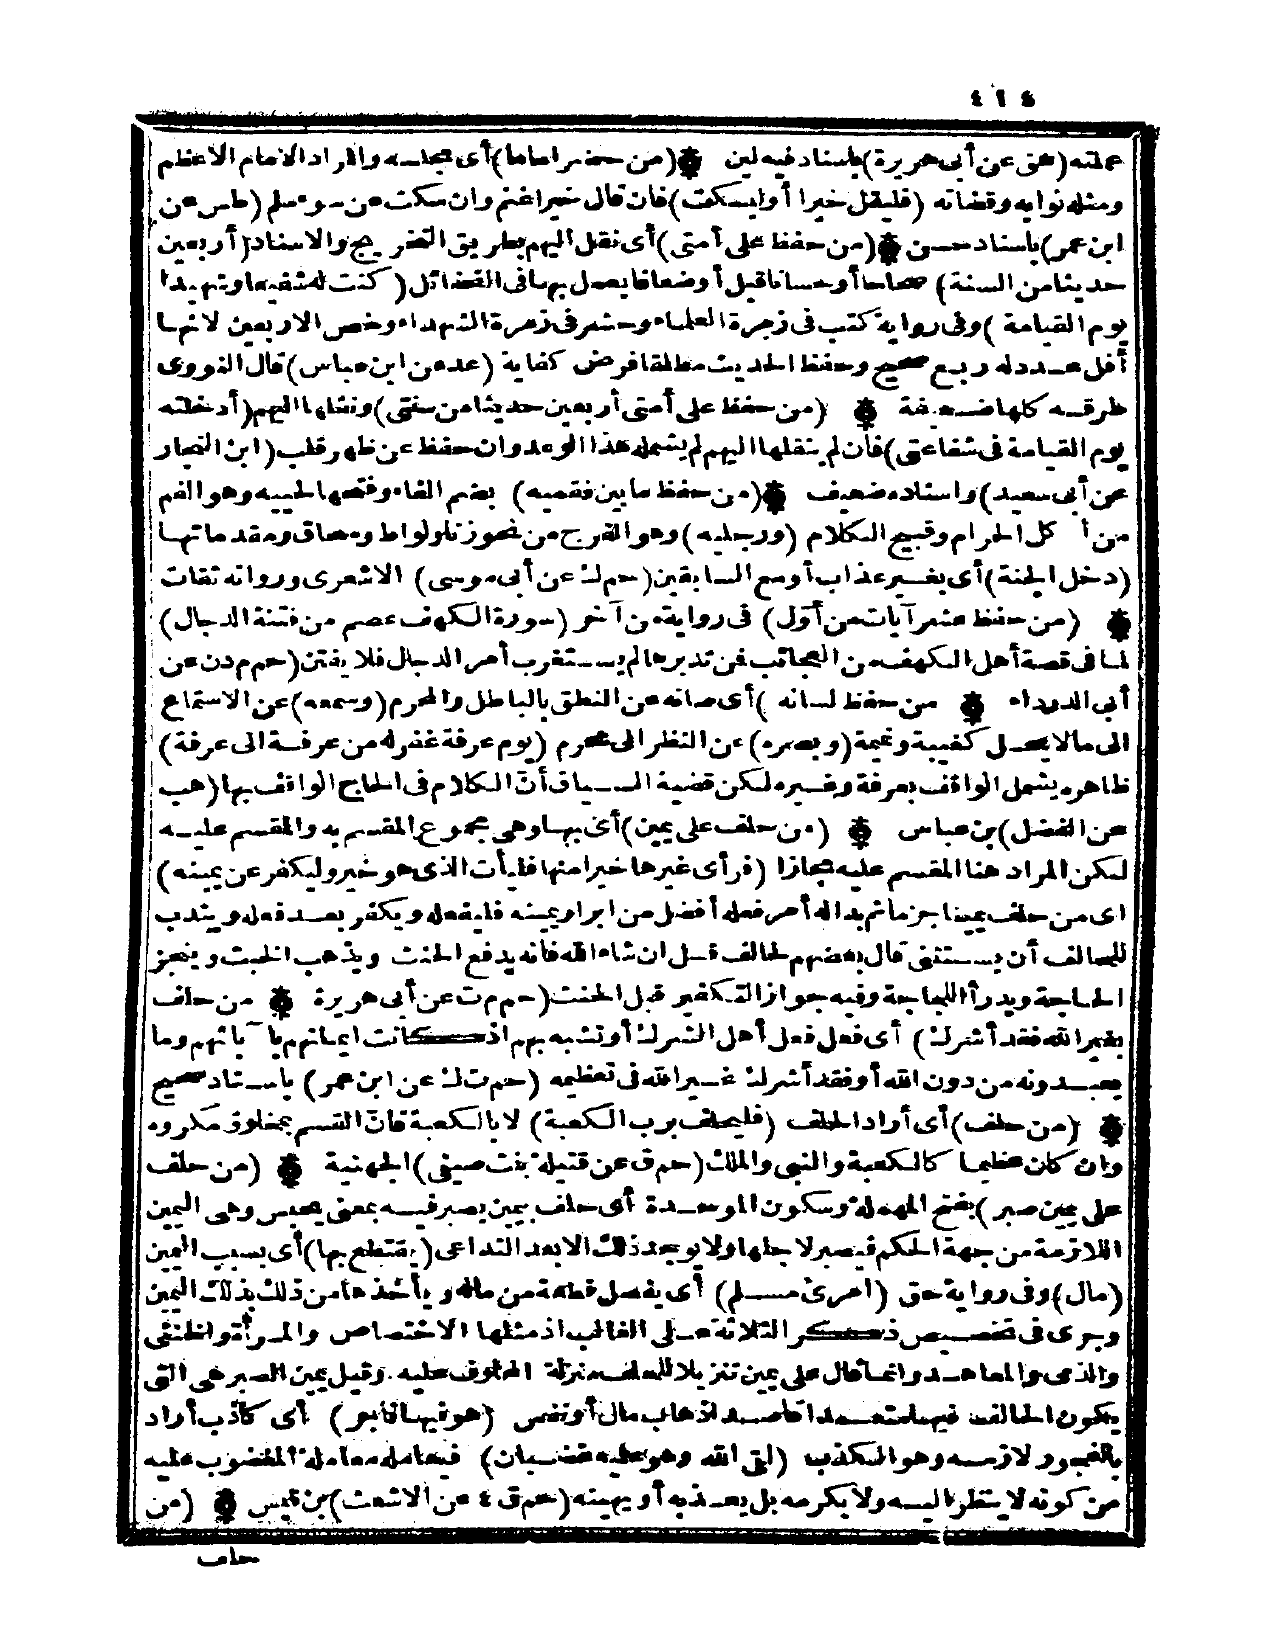 ٤١٤
علته (هق عن أبي هريرة) باسناد فيه لين ۞ (من حضر اماما) أى مجلسه والمراد الامام الاعظم
ومثله نوابه وقضاته (فليقل خيرا أو ليسكت) فان قال خيرا غنم وان سكت عن سوء سلم (طس عن
ابن عمر) باسناد حسن ۞ (من حفظ على أمتى) أى نقل اليهم بطريق التخريج والاسناد (أربعين
حديثا من السنة) صحاحا أو حسانا قيل أو ضعافا يعمل بها فى الفضائل (كنت له شفيعا وشهيدا
يوم القيامة) وفى رواية كتب فى زمرة العلماء وحشر فى زمرة الشهداء وخص الاربعين لانها
أقل عدد له ربع صحيح وحفظ الحديث مطلقا فرض كفاية (عد عن ابن عباس) قال النووى
طرقه كلها ضعيفة ۞ (من حفظ على أمتى أربعين حديثا من سنتى) ونقلها اليهم (أدخلته
يوم القيامة فى شفاعتى) فان لم ينقلها اليهم لم يشمله هذا الوعد وان حفظ عن ظهر قلب (ابن النجار
عن أبى سعيد) واسناده ضعيف ۞ (من حفظ ما بين فقميه) بضم الفاء وفتحها لحييه وهو الفم
من أ كل الحرام وقبيح الكلام (ورجليه) وهو الفرج من نحو زنا ولواط وسحاق ومقدماتها
(دخل الجنة) أى بغير عذاب أو مع السابقين (حم ك عن أبى موسى) الاشعرى ورواته ثقات
۞ (من حفظ عشر آيات من أول) فى رواية من آخر (سورة الكهف عصم من فتنة الدجال)
لما فى قصة أهل الكهف من العجائب فمن تدبرها لم يستغرب أمر الدجال فلا يفتن (حم م د ن عن
أبى الدرداء ۞ من حفظ لسانه) أى صانه عن النطق بالباطل والمحرم (وسمعه) عن الاستماع
الى ما لا يحل كغيبة ونميمة (وبصره) عن النظر الى محرم (يوم عرفة غفر له من عرفة الى عرفة)
ظاهره يشمل الواقف بعرفة وغيره لكن قضية السياق أن الكلام فى الحاج الواقف بها (هب
عن الفضل) بن عباس ۞ (من حلف على يمين) أى بها وهى مجموع المقسم به والمقسم عليه
لكن المراد هنا المقسم عليه مجازا (فرأى غيرها خيرا منها فليأت الذى هو خير وليكفر عن يمينه)
اى من حلف يمينا جزما ثم بدا له أمر فعله أفضل من ابرار يمينه فليفعله ويكفر بعد فعله ويندب
للحالف أن يستثنى قال بعضهم لحالف قل ان شاء الله فانه يدفع الحنث ويذهب الخبث وينجز
الحاجة ويدرأ اللجاجة وفيه جواز التكفير قبل الحنث (حم م ت عن أبى هريرة ۞ من حلف
بغير الله فقد أشرك) أى فعل فعل أهل الشرك أو تشبه بهم اذ كانت ايمانهم با آبائهم وما
يعبدونه من دون الله أو فقد أشرك غير الله فى تعظيمه (حم ت ك عن ابن عمر) باسناد صحيح
۞ (من حلف) أى أراد الحلف (فليحلف برب الكعبة) لا بالكعبة فان القسم بمخلوق مكروه
وان كان عظيما كالكعبة والنبى والملك (حم ق عن قتيلة بنت صيفى) الجهنية ۞ (من حلف
على يمين صبر) بفتح المهملة وسكون الموحدة أى حلف يمين يصبر فيه بمعنى يحبس وهى اليمين
اللازمة من جهة الحكم فيصبر لاجلها ولا يوجد ذلك الا بعد التداعى (يقتطع بها) أى بسبب اليمين
(مال) وفى رواية حق (امرئ مسلم) أى يفصل قطعة من ماله ويأخذها من ذلك بذلك اليمين
وجرى فى تخصيص ذكر الثلاثة على الغالب اذ مثلها الاختصاص والمرأة والخنثى
والذمى والمعاهد وانما قال على يمين تنزيلا للحلف منزلة المحلوف عليه وقيل يمين الصبر هى التى
يكون الحالف فيها متعمدا قاصدا لاذهاب مال أو نفس (هو فيها فاجر) أى كاذب أراد
بالفجور لازمه وهو الكذب (لقى الله وهو عليه غضبان) فيعامله معاملة المغضوب عليه
من كونه لا ينظر اليه ولا يكرمه بل يعذبه أو يهينه (حم ق ٤ عن الاشعث) بن قيس ۞ (من
حلف